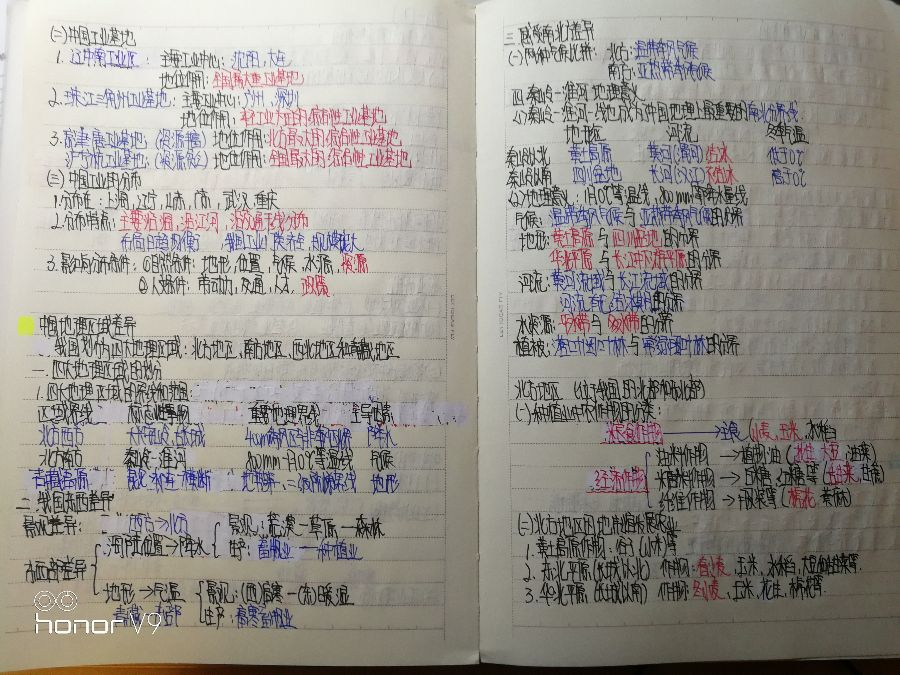 (二)中国工业基地
1. 辽中南工业区: 主要工业中心: 沈阳, 大连
地位作用: 全国最大重工业基地
2. 珠江三角洲工业基地: 主要工业中心: 广州, 深圳
地位作用: 轻工业为主的综合性工业基地
3. 京津唐工业基地: (资源丰富) 地位作用: 北方最大的综合性工业基地
沪宁杭工业基地: (资源贫乏) 地位作用: 全国最大的综合性工业基地
(三)中国工业的分布
1. 分布在: 上海, 辽宁, 山东, 广东, 武汉, 重庆
2. 分布特点: 主要沿海, 沿江河, 沿交通线分布
布局日趋均衡 我国工业门类齐全, 规模庞大
3. 影响分布条件: ①自然条件: 地形, 位置, 气候, 水源, 资源
②人文条件: 劳动力, 交通, 人才, 政策
中国地理区域差异
我国划分为四大地理区域: 北方地区, 南方地区, 西北地区和青藏地区
一. 四大地理区域的划分
1. 四大地理区域的界线和范围
区域界线 标志性事物 重要地理界线 主导因素
北方西方 大兴安岭, 长城 400mm 降水
北方南方 秦岭-淮河 800mm-1月0℃等温线 气候
青藏高原 横断 地势第一、二级阶梯界线 地形
二. 我国东西差异
景观差异: 西方→北方 景观: 荒漠—草原—森林
海陆位置→降水 生产: 畜牧业—种植业
东西部差异
地形→气温 景观: (西)寒—(东)暖湿
青藏—东部 生产: 高寒畜牧业
三. 感受南北方差异
(一)两种气候比拼: 北方: 温带季风气候
南方: 亚热带季风气候
四. 秦岭-淮河 地理意义
(1)秦岭-淮河一线成为中国地理上最重要的南北分界线
地形区 河流 冬季气温
秦岭以北 黄土高原 黄河(渭河)结冰 低于0℃
秦岭以南 四川盆地 长江(汉江)不结冰 高于0℃
(2)地理意义: 1月0℃等温线, 800mm等降水量线
气候: 温带季风气候与亚热带季风气候的分界
地形: 黄土高原与四川盆地的分界
华北平原与长江中下游平原的分界
河流: 黄河流域与长江流域的分界
河流有无结冰期的分界
水资源: 平水带与多水带的分界
植被: 落叶阔叶林与常绿阔叶林的分界
北方地区 (位于我国的北部和东北部)
(一)种植业中农作物的分类:
粮食作物 → 主食 (小麦, 玉米, 水稻)
油料作物 → 植物油 (花生, 大豆, 油菜)
经济作物 糖料作物 → 白糖, 红糖等 (甜菜, 甘蔗)
纤维作物 → 布, 服装等 (棉花, 黄麻)
(二)北方地区因地制宜发展农业
1. 黄土高原作物: 谷子(小米)等
2. 东北平原(长城以北) 作物: 春小麦, 玉米, 水稻, 大豆, 甜菜等
3. 华北平原(长城以南) 作物: 冬小麦, 玉米, 花生, 棉花等
honor V9